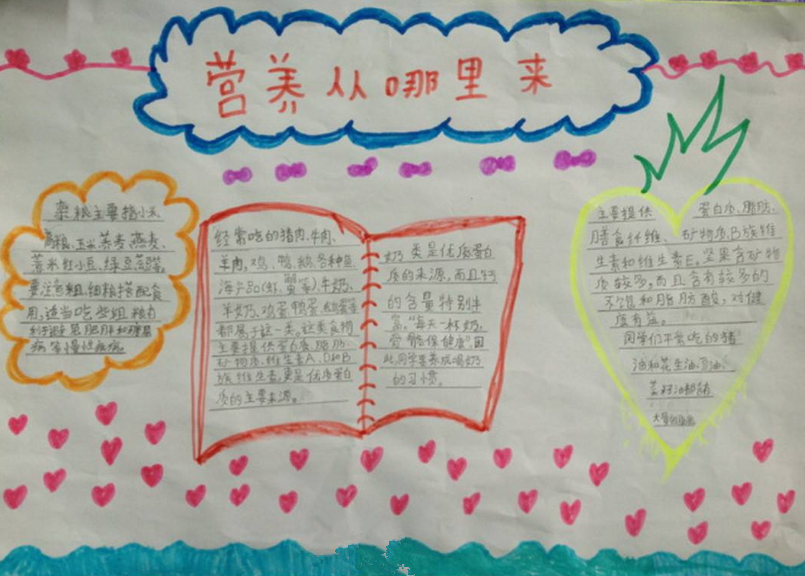 营养从哪里来
杂粮主要指小米
高粱、玉米荞麦、燕麦、
薏米红小豆、绿豆芸豆等。
要注意粗细粮搭配食
用,适当吃些粗粮有
利于避免肥胖和糖尿
病等慢性疾病。
经常吃的猪肉、牛肉、
羊肉,鸡、鸭、鹅,各种鱼、
海产品(虾,蟹等),牛奶、
羊奶,鸡蛋,鸭蛋,鹌鹑蛋
都属于这一类,这类食物
主要提供蛋白质、脂肪、
矿物质,维生素A、D和B
族维生素,更是优质蛋白
质的主要来源。
奶类是优质蛋白
质的来源,而且钙
的含量特别丰
富,“每天一杯奶,
营能保健康”因
此,同学要养成喝奶
的习惯。
主要提供 蛋白质、脂肪、
膳食纤维、矿物质,B族维
生素和维生素E,坚果含矿物
质较多,而且含有较多的
不饱和脂肪酸,对健
康有益。
同学们不常吃的猪
油和花生油、豆油、
菜籽油都是